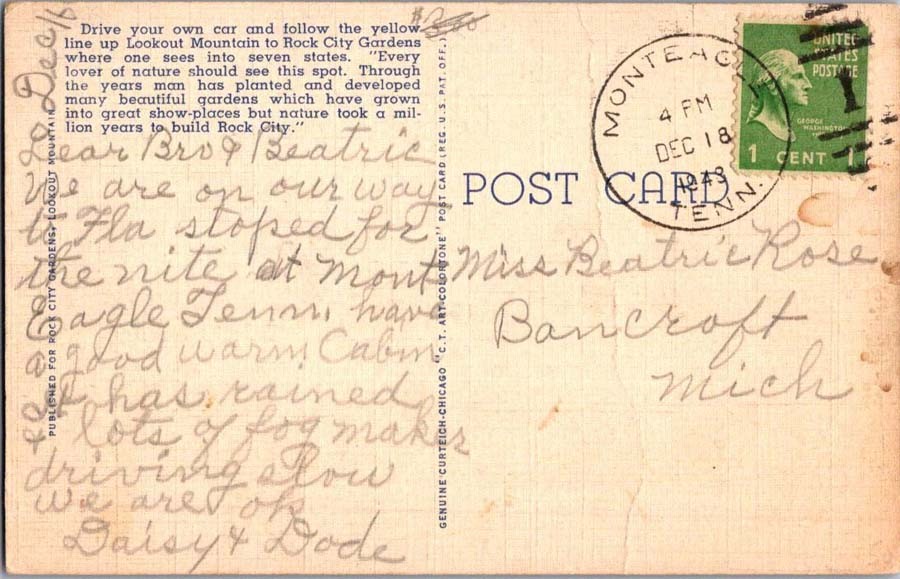 $3.00
Drive your own car and follow the yellow
line up Lookout Mountain to Rock City Gardens
where one sees into seven states. "Every
lover of nature should see this spot. Through
the years man has planted and developed
many beautiful gardens which have grown
into great show-places but nature took a mil-
lion years to build Rock City."
Dec 16
Dear Bro & Beatric
We are on our way
to Fla stoped for
the nite at Mont
Eagle Tenn, have
a good warm Cabin
& it has rained
& lots of fog makes
driving slow
we are ok
Daisy & Dode
PUBLISHED FOR ROCK CITY GARDENS, LOOKOUT MOUNTAIN
GENUINE CURTEICH-CHICAGO "C.T. ART-COLORTONE" POST CARD (REG. U.S. PAT. OFF.)
POST CARD
MONTEAGLE
4 PM
DEC 18
1943
TENN.
UNITED
STATES
POSTAGE
GEORGE
WASHINGTON
1 CENT 1
Miss Beatric Rose
Bancroft
Mich